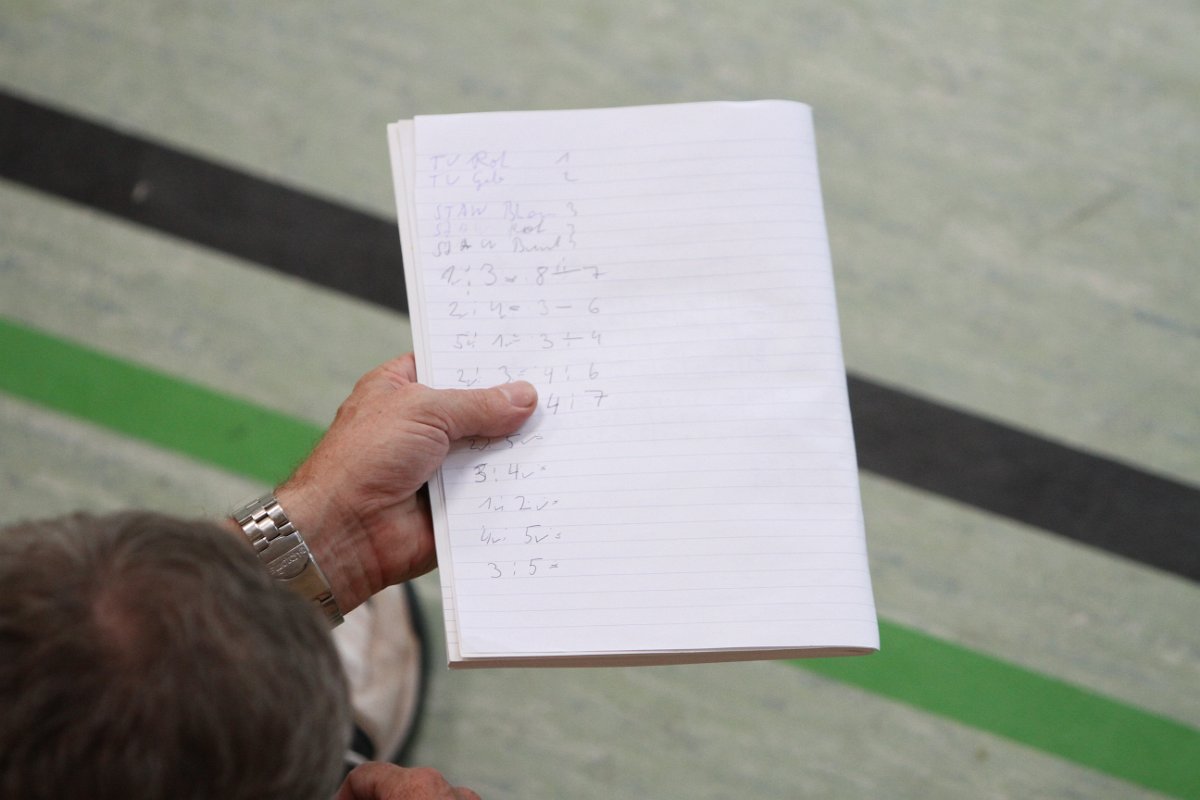 TV Rot 1
TV Gelb 2
STAW Blau 3
STAW Rot
STAW Bunt 5
1 : 3 = 8 : 7
2 : 4 = 3 - 6
5 : 1 = 3 : 4
2 : 3 = 4 : 6
4 : 7
2 : 5 =
3 : 4 =
1 : 2 =
4 : 5 =
3 : 5 =